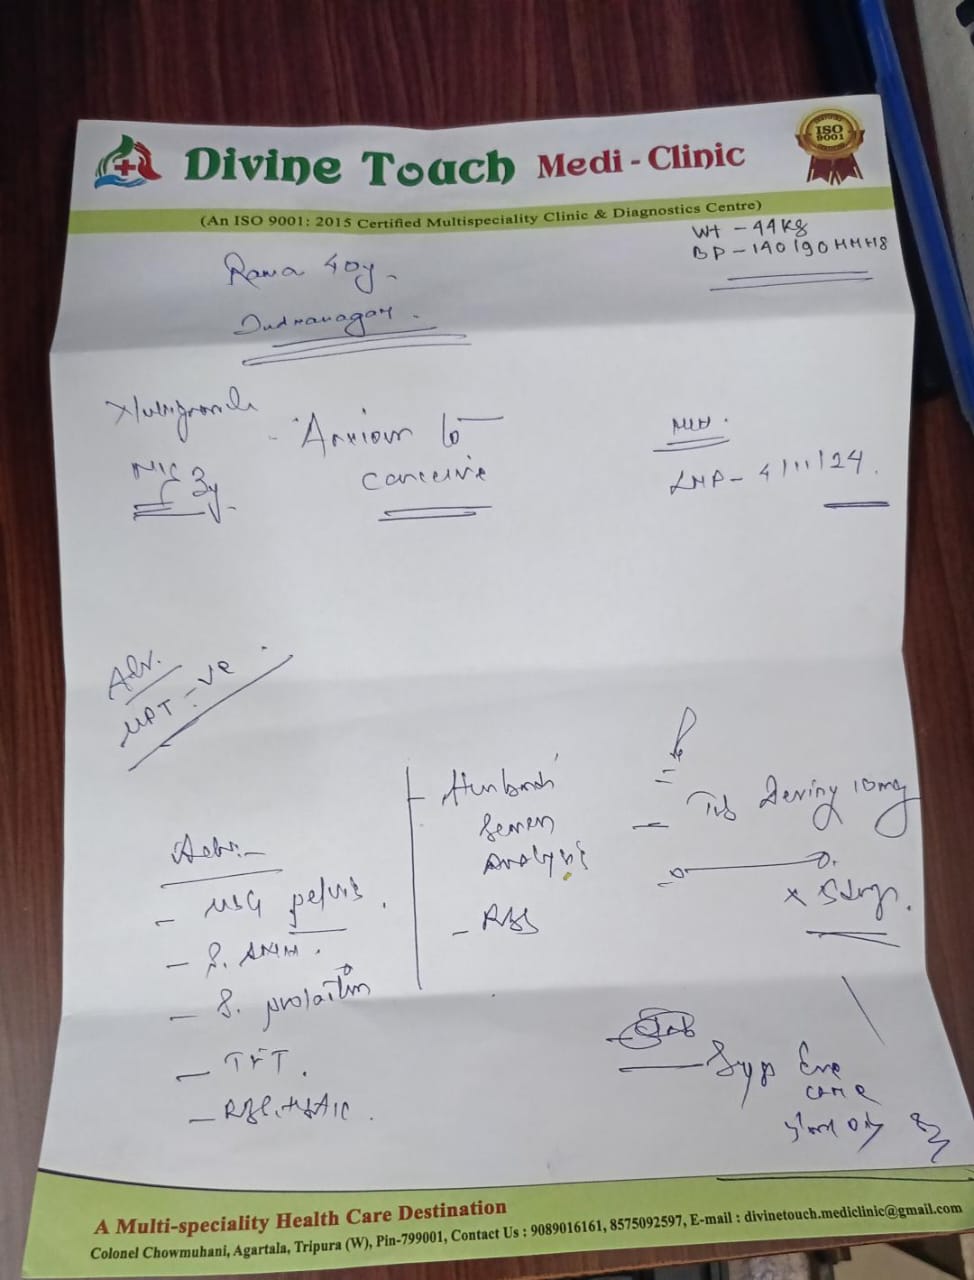 Divine Touch Medi - Clinic
ISO 9001
(An ISO 9001: 2015 Certified Multispeciality Clinic & Diagnostics Centre)
Wt - 44Kg
BP - 140/90 MMHg
Rama 40y.
Indranagar.
Anxious to
conceive
MH.
LMP - 4/11/24.
3y
Adv.
UPT -ve
Adv:-
- USG pelvis.
- S. AMH.
- S. prolactin
- TFT.
Husband
Semen
Analysis
- RBS
Tab Deviry 10mg
x 5 days.
Syp Eve
care
A Multi-speciality Health Care Destination
Colonel Chowmuhani, Agartala, Tripura (W), Pin-799001, Contact Us : 9089016161, 8575092597, E-mail : divinetouch.mediclinic@gmail.com